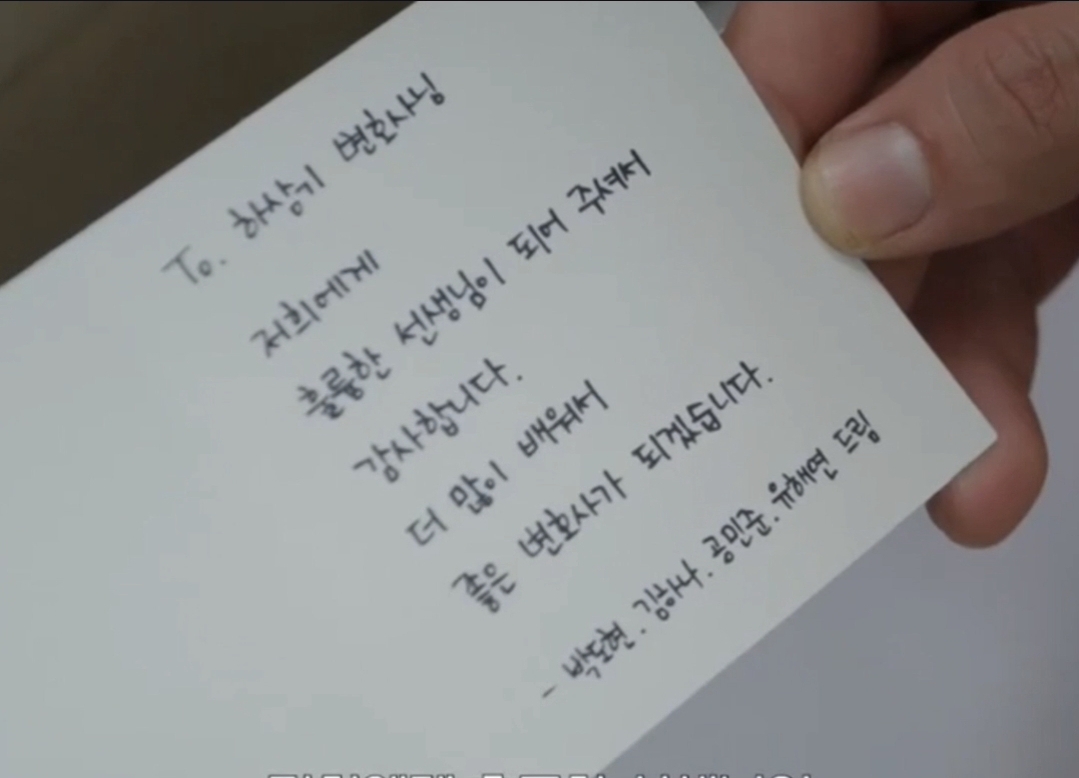 To. 하상기 변호사님
저희에게
훌륭한 선생님이 되어 주셔서
감사합니다.
더 많이 배워서
좋은 변호사가 되겠습니다.
- 박도현. 김하나. 공민준. 유해연 드림